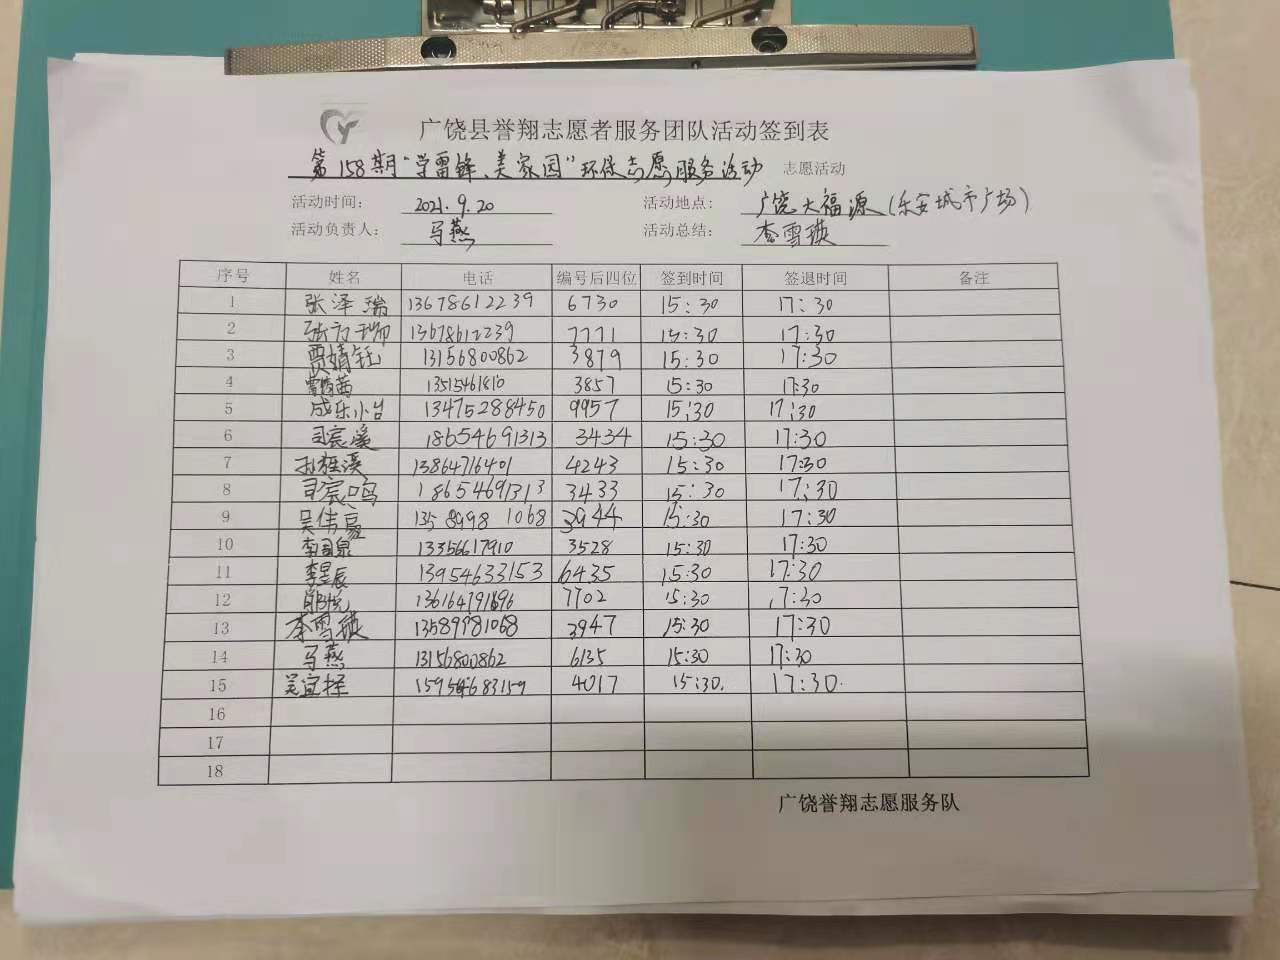 广饶县誉翔志愿者服务团队活动签到表
第158期"学雷锋、美家园"环保志愿服务活动 志愿活动
活动时间： 2021.9.20 活动地点： 广饶大福源(乐安城市广场)
活动负责人： 马燕 活动总结： 李雪瑛
序号 姓名 电话 编号后四位 签到时间 签退时间 备注
1 张泽瑞 13678612239 6730 15:30 17:30
2 13678612239 7771 15:30 17:30
3 贾婧钰 13156800862 3879 15:30 17:30
4 3857 15:30 17:30
5 成乐小台 13475288450 9957 15:30 17:30
6 司宸溪 18654691313 3434 15:30 17:30
7 13864716401 4243 15:30 17:30
8 司宸鸣 18654691313 3433 15:30 17:30
9 吴伟豪 13589981068 3944 15:30 17:30
10 李国泉 13356617910 3528 15:30 17:30
11 李昱辰 13954633153 6435 15:30 17:30
12 7702 15:30 17:30
13 李雪瑛 13589981068 3947 15:30 17:30
14 马燕 13156800862 6135 15:30 17:30
15 吴宜择 4017 15:30. 17:30.
16
17
18
广饶誉翔志愿服务队